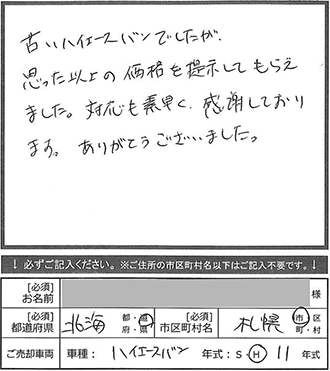 古いハイエースバンでしたが、
思った以上の価格を提示してもらえ
ました。対応も素早く、感謝しており
ます。ありがとうございました。
↓必ずご記入ください。※ご住所の市区町村名以下はご記入不要です。↓
[必須] お名前 様
[必須] 都道府県 北海 都・道 府・県 [必須] 市区町村名 札幌 市・区 町・村
ご売却車両 車種：ハイエースバン 年式：S・H 11 年式